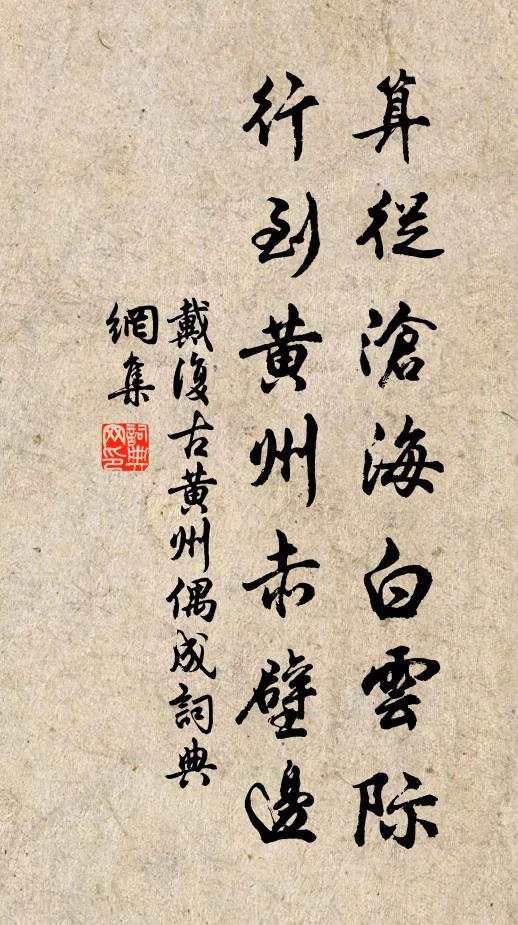 算從滄海白雲际
行到黄州赤壁邊
戴復古黄州偶成詞典
網集
詞典
网印